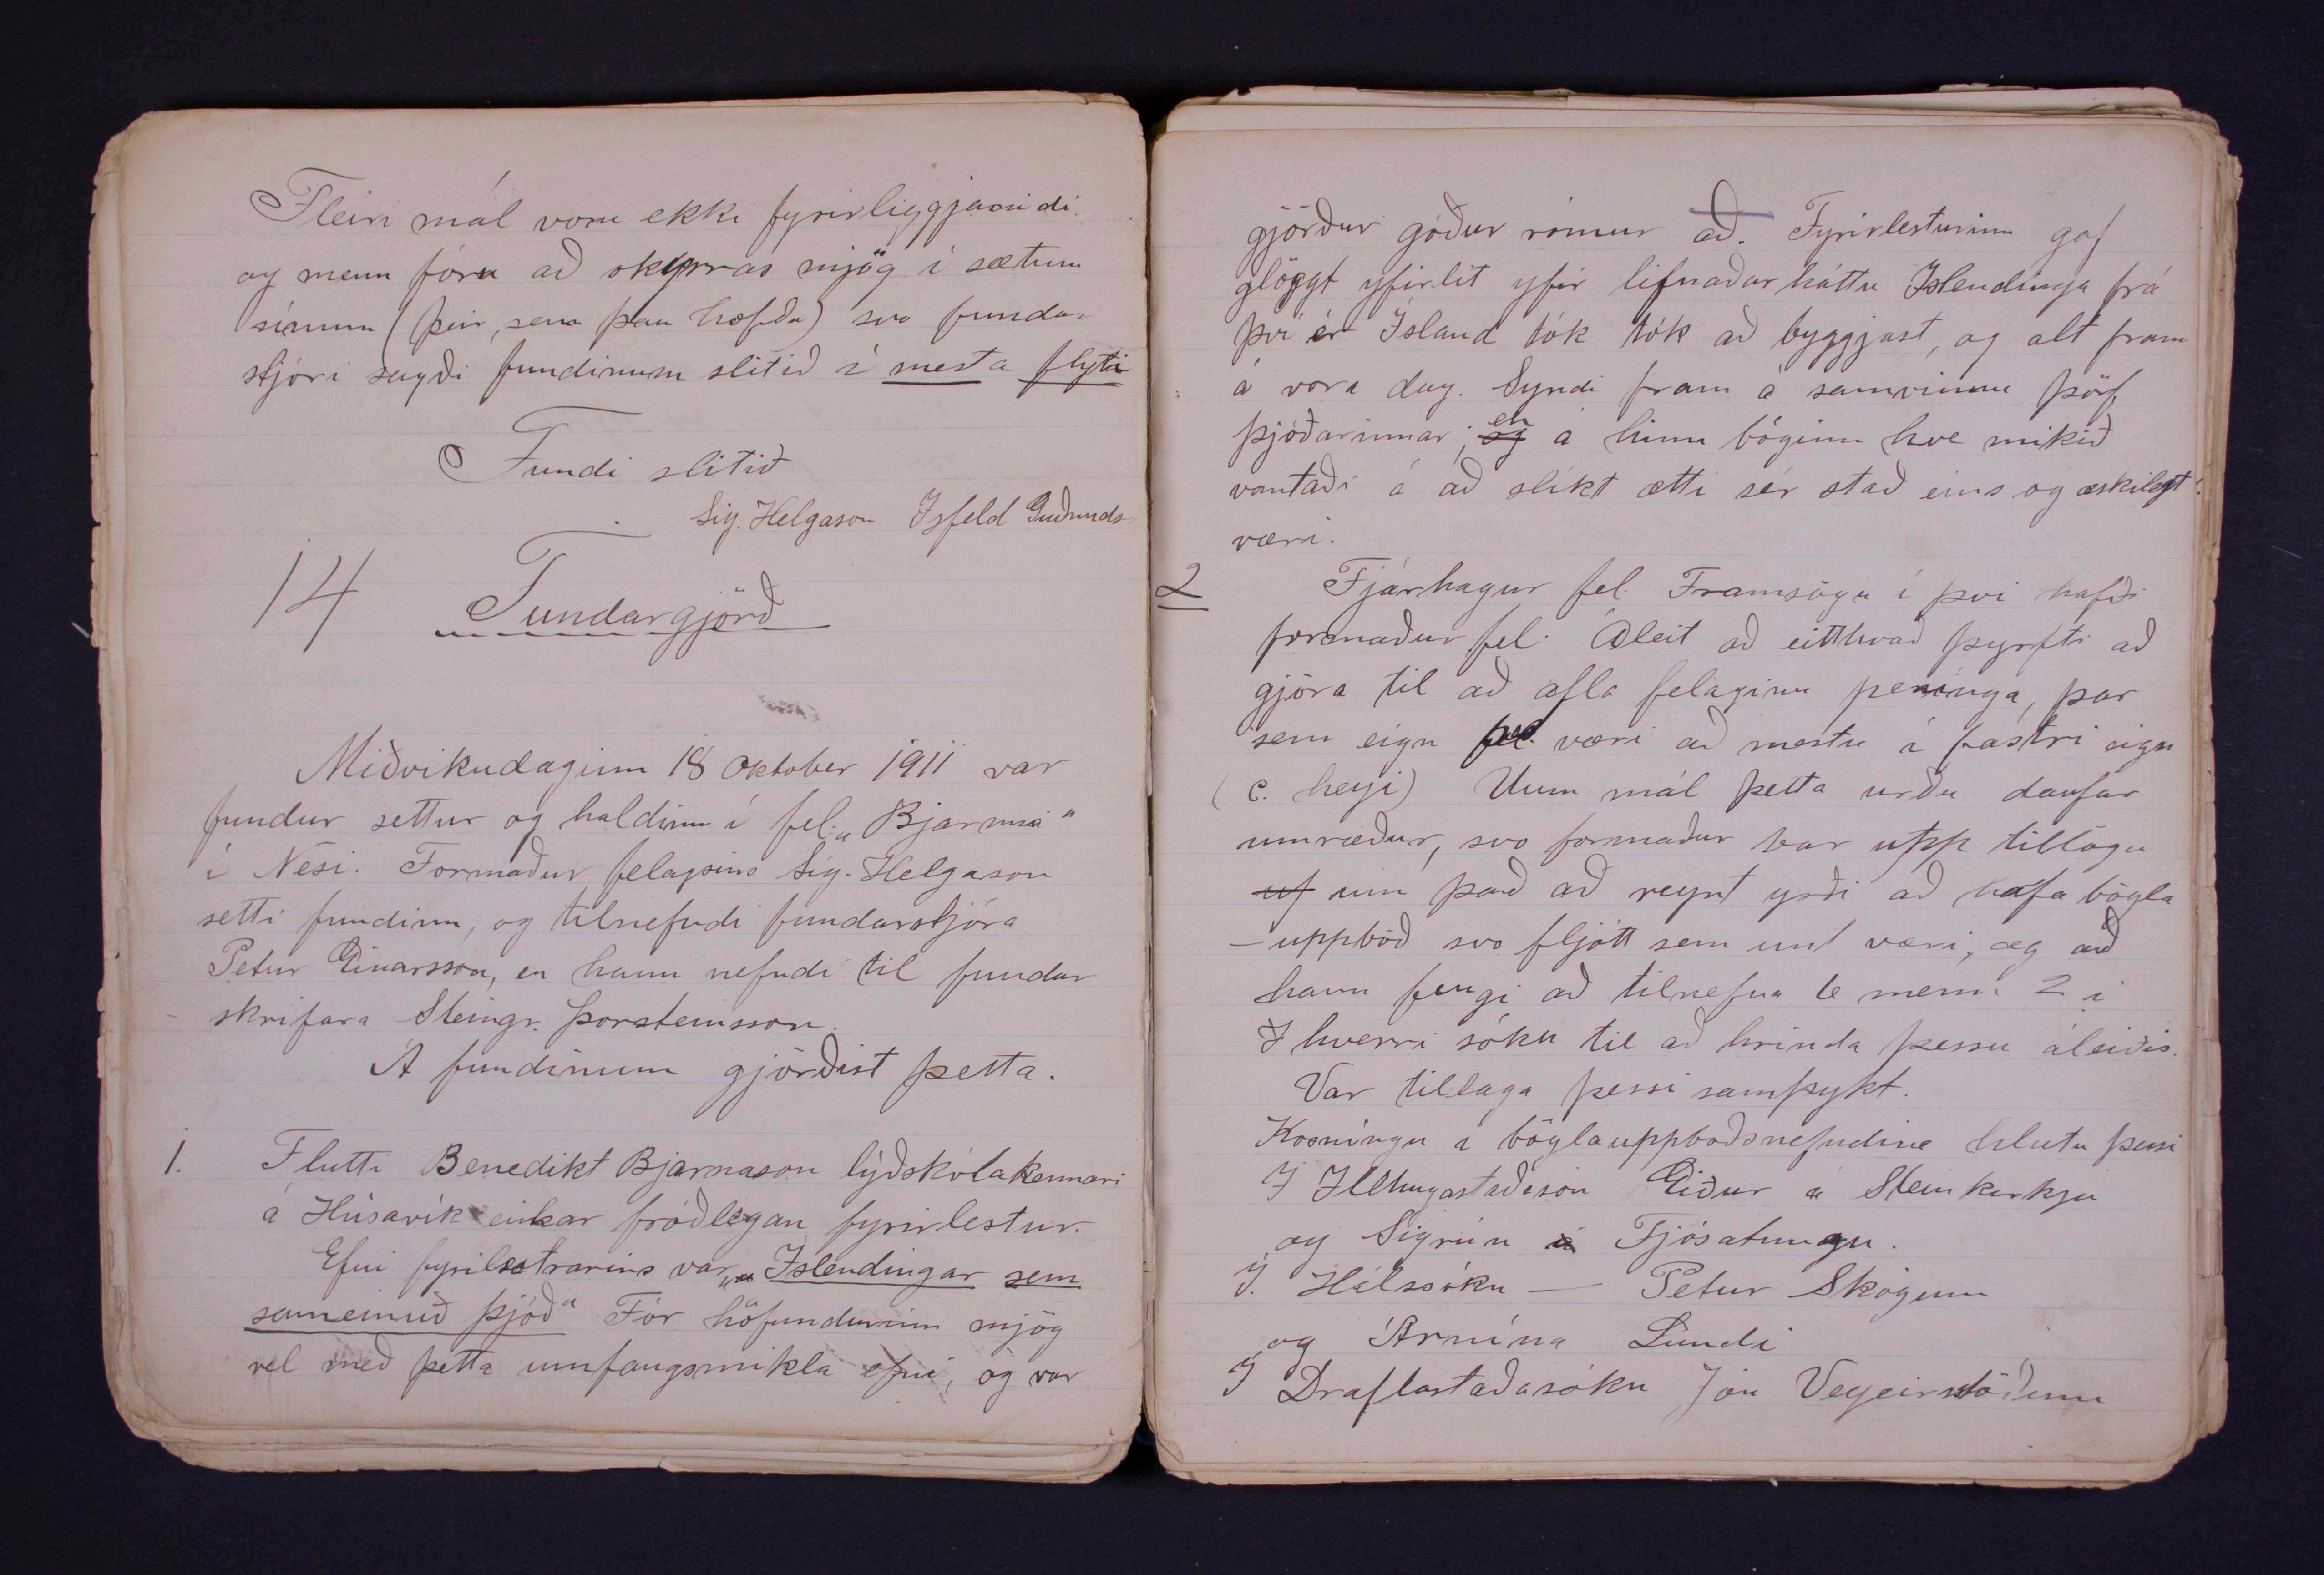 Fleiri mál voru ekki fyrirliggjandi
og menn fóru að okyrras mjög í sætum
sínum (þeir, sem þau höfðu) svo fundar
stjóri sagði fundinum slitið í mesta flyti
Fundi slitið
Sig. Helgason Isfeld Guðmunds
14 Fundargjörð
Miðvikudaginn 18 Oktober 1911 var
fundur settur og haldinn í fel. „Bjarmi“
í Nesi. Formaður felagsins Sig. Helgason
setti fundinn, og tilnefndi fundarstjóra
Petur Einarsson, en hann nefndi til fundar
skrifara Steingr. Þorsteinsson.
Á fundinum gjörðist þetta.
1. Flutti Benedikt Bjarnason lýðskólakennari
á Húsavík einkar fróðlegan fyrirlestur.
Efni fyrilestrarins var „Islendingar sem
sameinuð þjóð“ Fór höfundurinn mjög
vel með þetta umfangsmikla efni, og var
gjörður góður rómur að. Fyrirlesturinn gaf
glöggt yfirlit yfir lifnaðarháttu Islendinga frá
því er Ísland tók tók að byggjast, og alt fram
á vora dag. Syndi fram á samvinnu þörf
þjóðarinnar; og en á hinn bóginn hve mikið
vantaði á að slíkt ætti sér stað eins og æskilegt
væri.
2 Fjárhagur fel. Framsögu í því hafði
formaður fel. Áleit að eitthvað þyrfti að
gjöra til að afla felaginu peninga, þar
sem eign fel. væri að mestu í fastri eign
(c. heyi) Uum mál þetta urðu daufar
umræður, svo formaður bar upp tillögu
uf um það að reynt yrði að hafa bögla
- uppboð svo fljótt sem unt væri, og að
hann fengi að tilnefna 6 menn 2 í
I hverri sókn til að hrinda þessu áleiðis.
Var tillaga þessi samþykt.
Kosningu í böglauppboðsnefndine hlutu þessi
I Illhugastaðasón Eiður á Steinkirkju
og Sigrún á Fjósatungu.
I. Hálssókn — Petur Skógum
og Árnína Lundi
I Draflastaðasókn Jón Vegeirstöðum